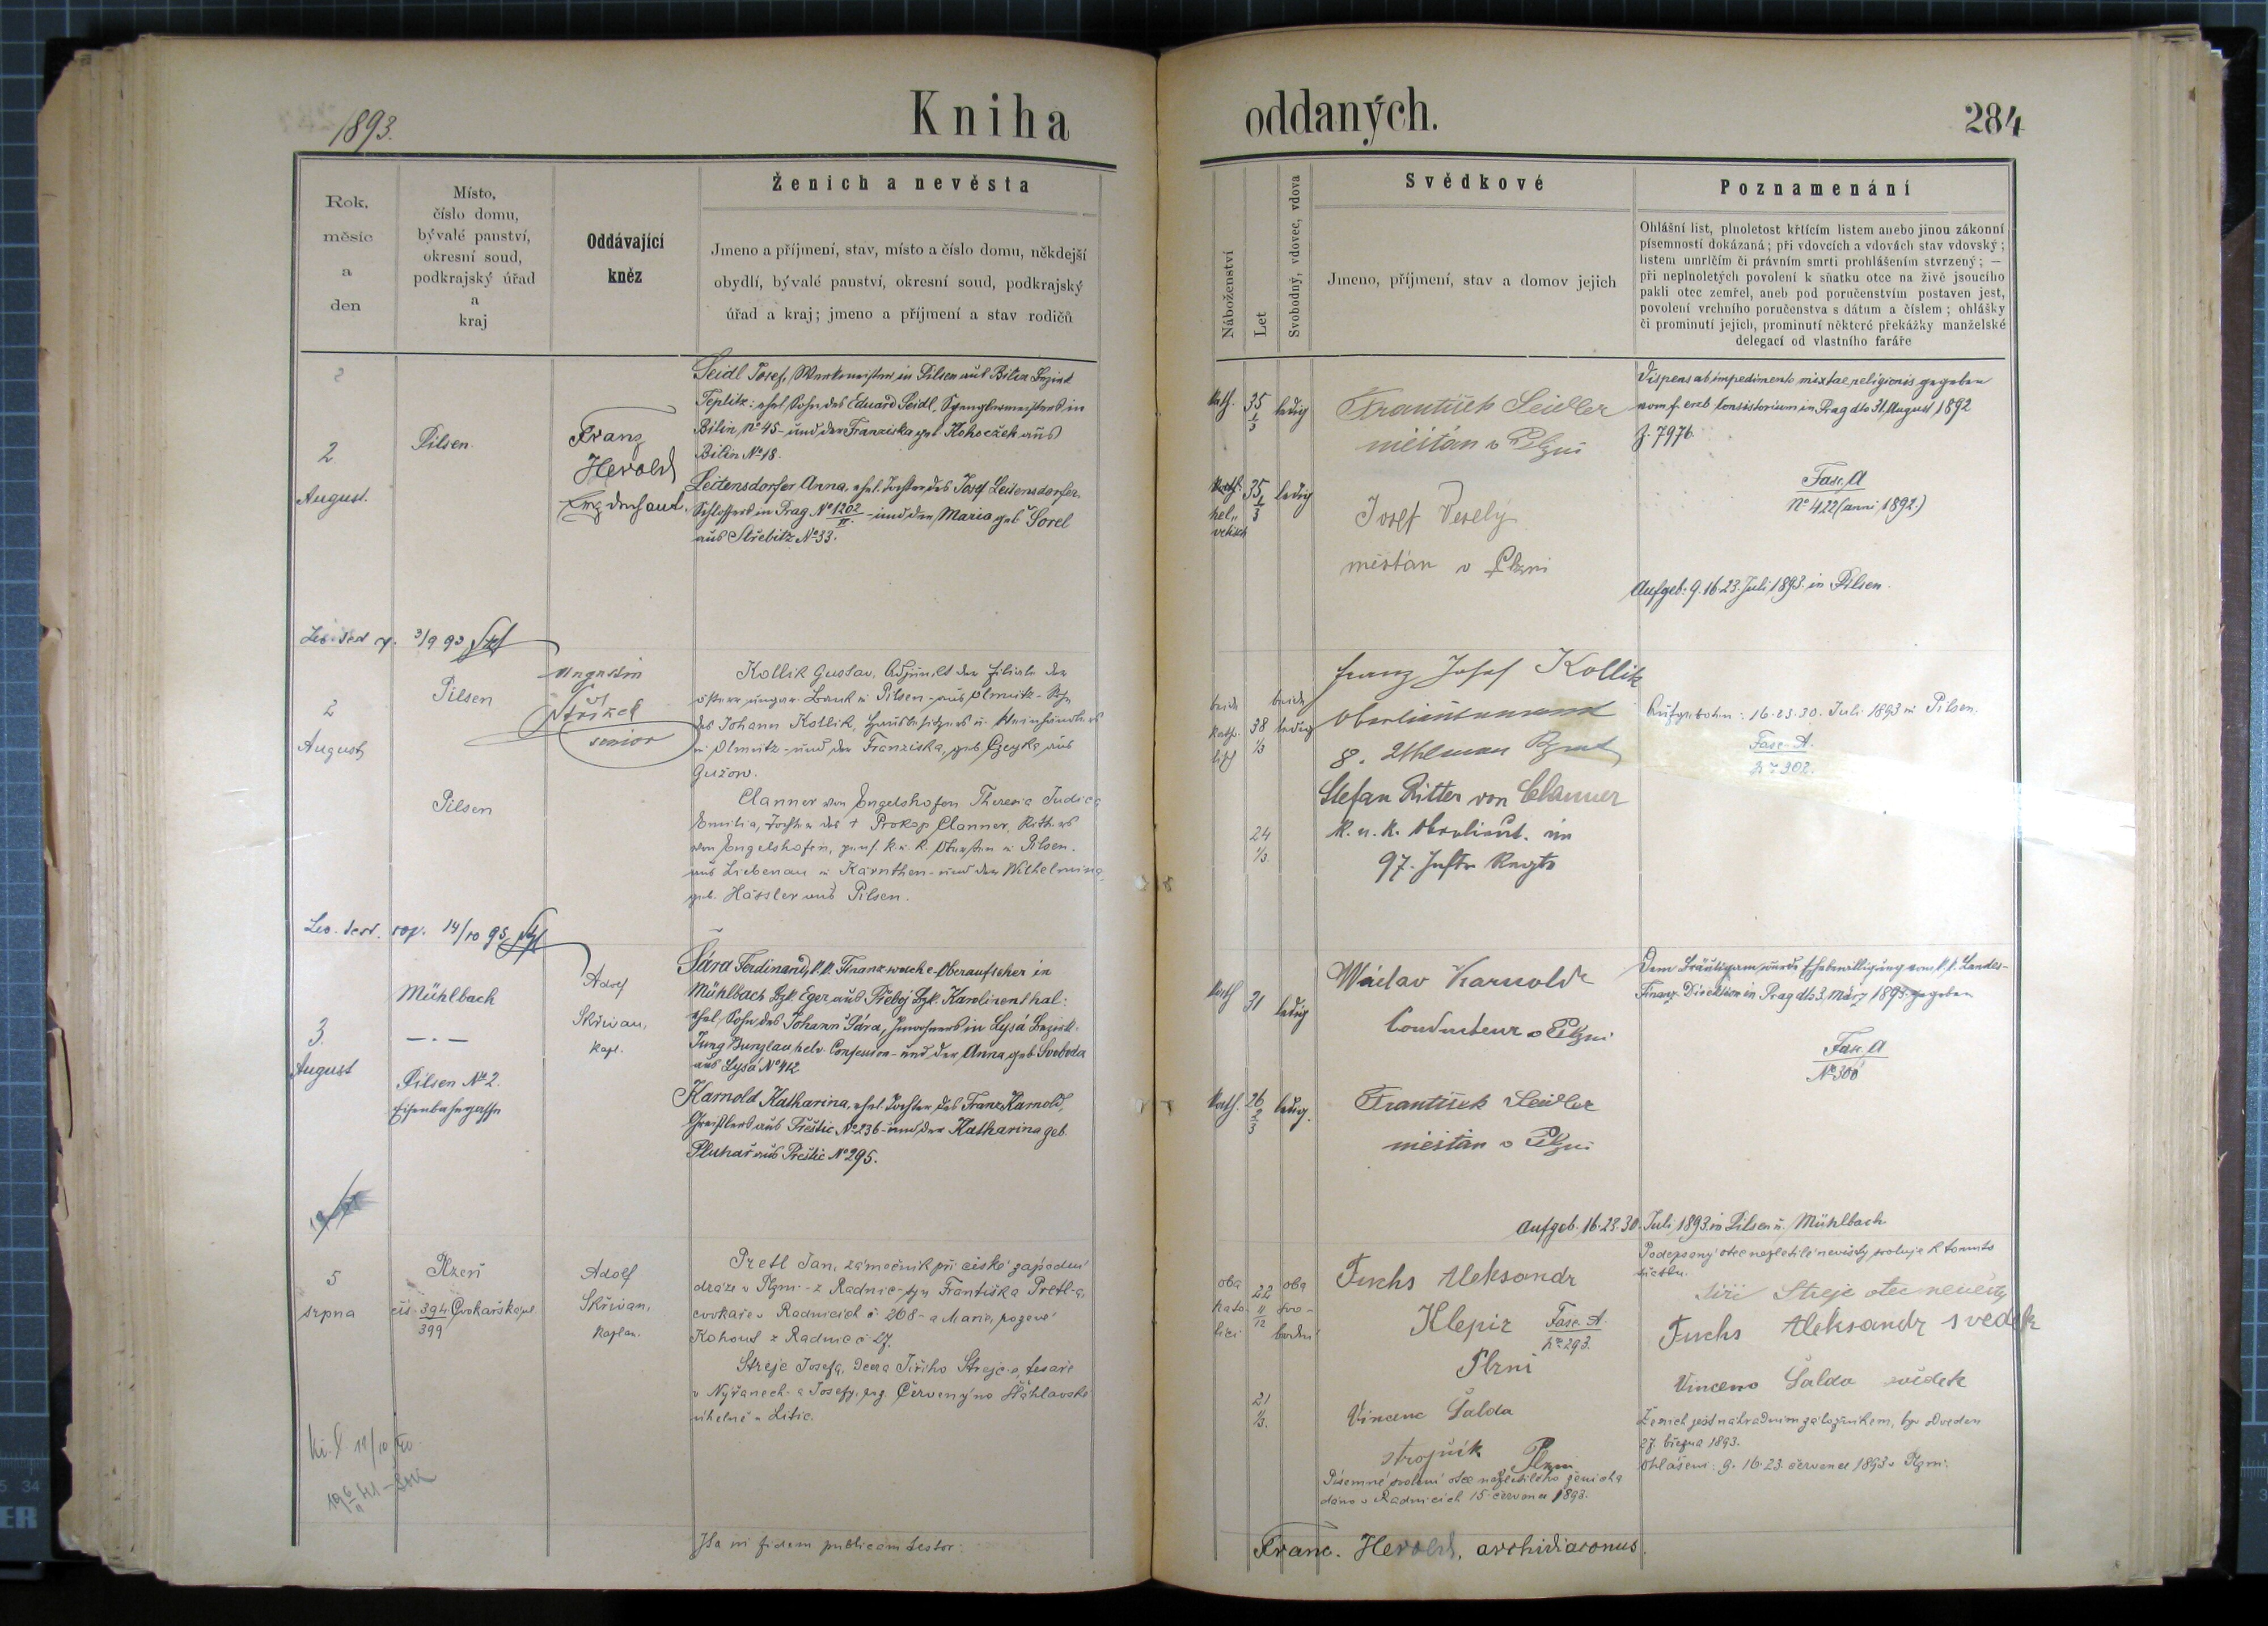 1893.
Kniha
oddaných.
284
Rok,
měsíc
a
den
Místo,
číslo domu,
bývalé panství,
okresní soud,
podkrajský úřad
a
kraj
Oddávající
kněz
Ženich a nevěsta
Jmeno a příjmení, stav, místo a číslo domu, někdejší
obydlí, bývalé panství, okresní soud, podkrajský
úřad a kraj; jmeno a příjmení a stav rodičů
Náboženství
Let
Svobodný, vdovec, vdova
Svědkové
Jmeno, příjmení, stav a domov jejich
Poznamenání
Ohlášní list, plnoletost křtícím listem anebo jinou zákonní
písemností dokázaná; při vdovcích a vdovách stav vdovský;
listem umrlčím či právním smrti prohlášením stvrzený; —
při neplnoletých povolení k sňatku otce na živě jsoucího
pakli otec zemřel, aneb pod poručenstvím postaven jest,
povolení vrchního poručenstva s dátum a číslem; ohlášky
či prominutí jejich, prominutí některé překážky manželské
delegací od vlastního faráře
2
August.
Pilsen.
Franz
Herold
Erzdechant.
Seidl Josef, Werkmeister in Pilsen aus Bilin Bezirk
Teplitz: ehel. Sohn des Eduard Seidl, Spenglermeisters in
Bilin No 45 - und der Franziska geb. Kohoczek aus
Bilin No 18.
Leitensdorfer Anna, ehel. Tochter des Josef Leitensdorfer,
Schlossers in Prag No 1202/II. - und der Maria geb. Sorel
aus Střebitz No 33.
Kath. 35 1/3 ledig
Kath. 35 1/3 ledig
hel„
vetisch
František Seidler
měšťan v Plzni
Josef Veselý
měšťan v Plzni
Dispens ab impedimento mixtae religionis gegeben
vom f. erzb. Consistorium in Prag dto 31. August 1892
Z. 7976.
Fasc. A
No 422 (anni 1892.)
Aufgeb: 9. 16. 23. Juli 1893. in Pilsen.
3/9 93
2
August
Pilsen
Pilsen
senior
Kollik Gustav, Adjunkt der Filiale der
österr. ungar. Bank in Pilsen - aus Olmütz - Sohn
des Johann Kollik, Hausbesitzers u. Weinhändlers
in Olmütz - und der Franziska, geb. Czeyka aus
Gužow.
Clanner von Engelshofen Theresia Judica
Emilia, Tochter des † Prokop Clanner, Ritters
von Engelshofen, pens. k. u. k. Obersten in Pilsen.
aus Liebenau in Kärnthen - und der Wilhelmina,
geb. Hässler aus Pilsen.
beide
katho-
lisch
38
1/3
beide
ledig
24
1/3.
Franz Josef Kollik
Oberlieutenant
8. Uhlanen Rgmt
Stefan Ritter von Clanner
k. u. k. Oberlieut. im
97. Inftr. Regte
Aufgeboten: 16. 23. 30. Juli 1893 in Pilsen.
Fasc. A.
Nr 302.
14/10 95
3.
August
Mühlbach
— . —
Pilsen No 2.
Eisenbahngasse
Adolf
Skřivan,
Kapl.
Šára Ferdinand, k. k. Finanzwache-Oberaufseher in
Mühlbach Bzk. Eger aus Přeboj Bzk. Karolinenthal:
ehel. Sohn des Johann Šára, Inwohners in Lysá Bezirk
Jung Bunzlau, helv. Confession - und der Anna geb. Svoboda
aus Lysá No 412
Karnold Katharina, ehel. Tochter des Franz Karnold,
Greißlers aus Přeštic No 236 - und der Katharina geb.
Pluhař aus Přeštic No 295.
Kath. 31 ledig
Kath. 26 2/3 ledig.
Wáclav Karnold
Conducteur v Plzni
František Seidler
měšťan v Plzni
Dem Bräutigam wurde Ehebewilligung vom k. k. Landes-
Finanz-Direktion in Prag dto 3. März 1893. gegeben
Fasc. A
No 300
Aufgeb. 16. 23. 30. Juli 1893. in Pilsen u. Mühlbach.
5
srpna
Plzeň
čís. 394/399
Adolf
Skřivan,
Kaplan.
Pretl Jan, zámečník při české západní
dráze v Plzni - z Radnic - syn Františka Pretl-a,
cvokaře v Radnicích č. 268 - a Marie, rozené
Kohout z Radnic č. 27.
Streje Josefa, dcera Jiřího Streje-e, tesaře
v Nýřanech - a Josefy, roz. Červený
u Litic.
oba
kato-
lící
22
11/12
oba
svo-
bodní
21
1/3.
Fuchs Aleksandr
Klepíř
Plzni
Fasc. A.
Nr 293.
Vincenc Šalda
strojník Plzni
Písemné svolení otce nezletilého ženicha
dáno v Radnicích 15. července 1893.
Podepsaný otec nezletilé nevěsty svoluje k tomuto
sňatku.
Jiří Streje otec nevěsty
Fuchs Aleksandr svědek
Vincenc Šalda svědek
Ženich jest náhradním záložníkem, byv odveden
27. března 1893.
Ohlášení: 9. 16. 23. července 1893 v Plzni.
Ita in fidem publicam testor:
Franc. Herold, archidiaconus.